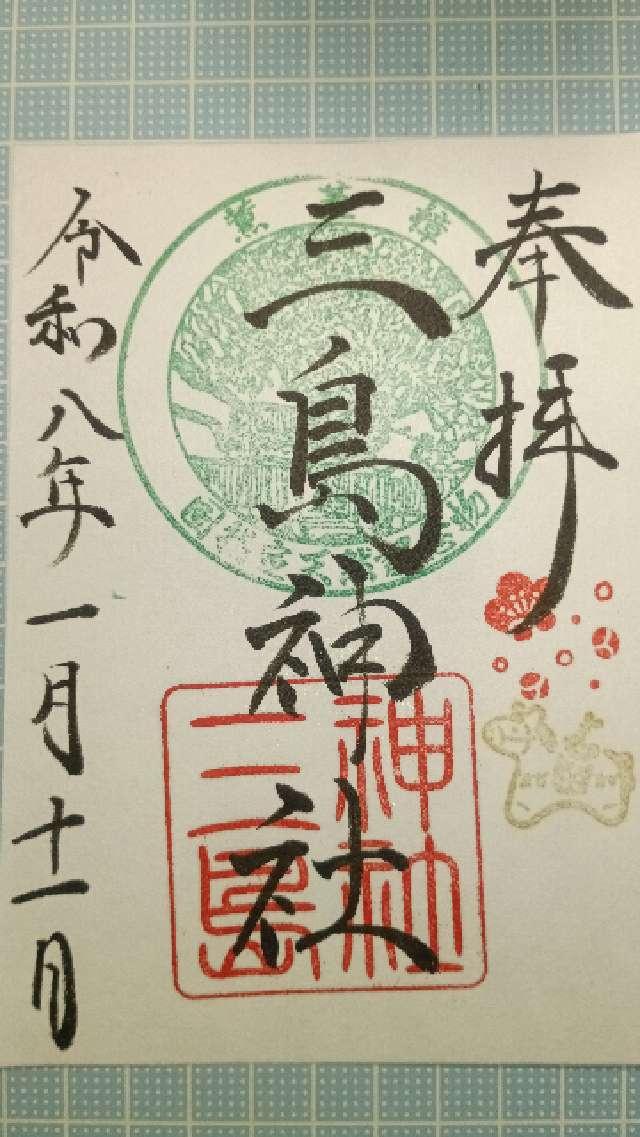 奉拝
三島神社
令和八年一月十一日
三島
神社